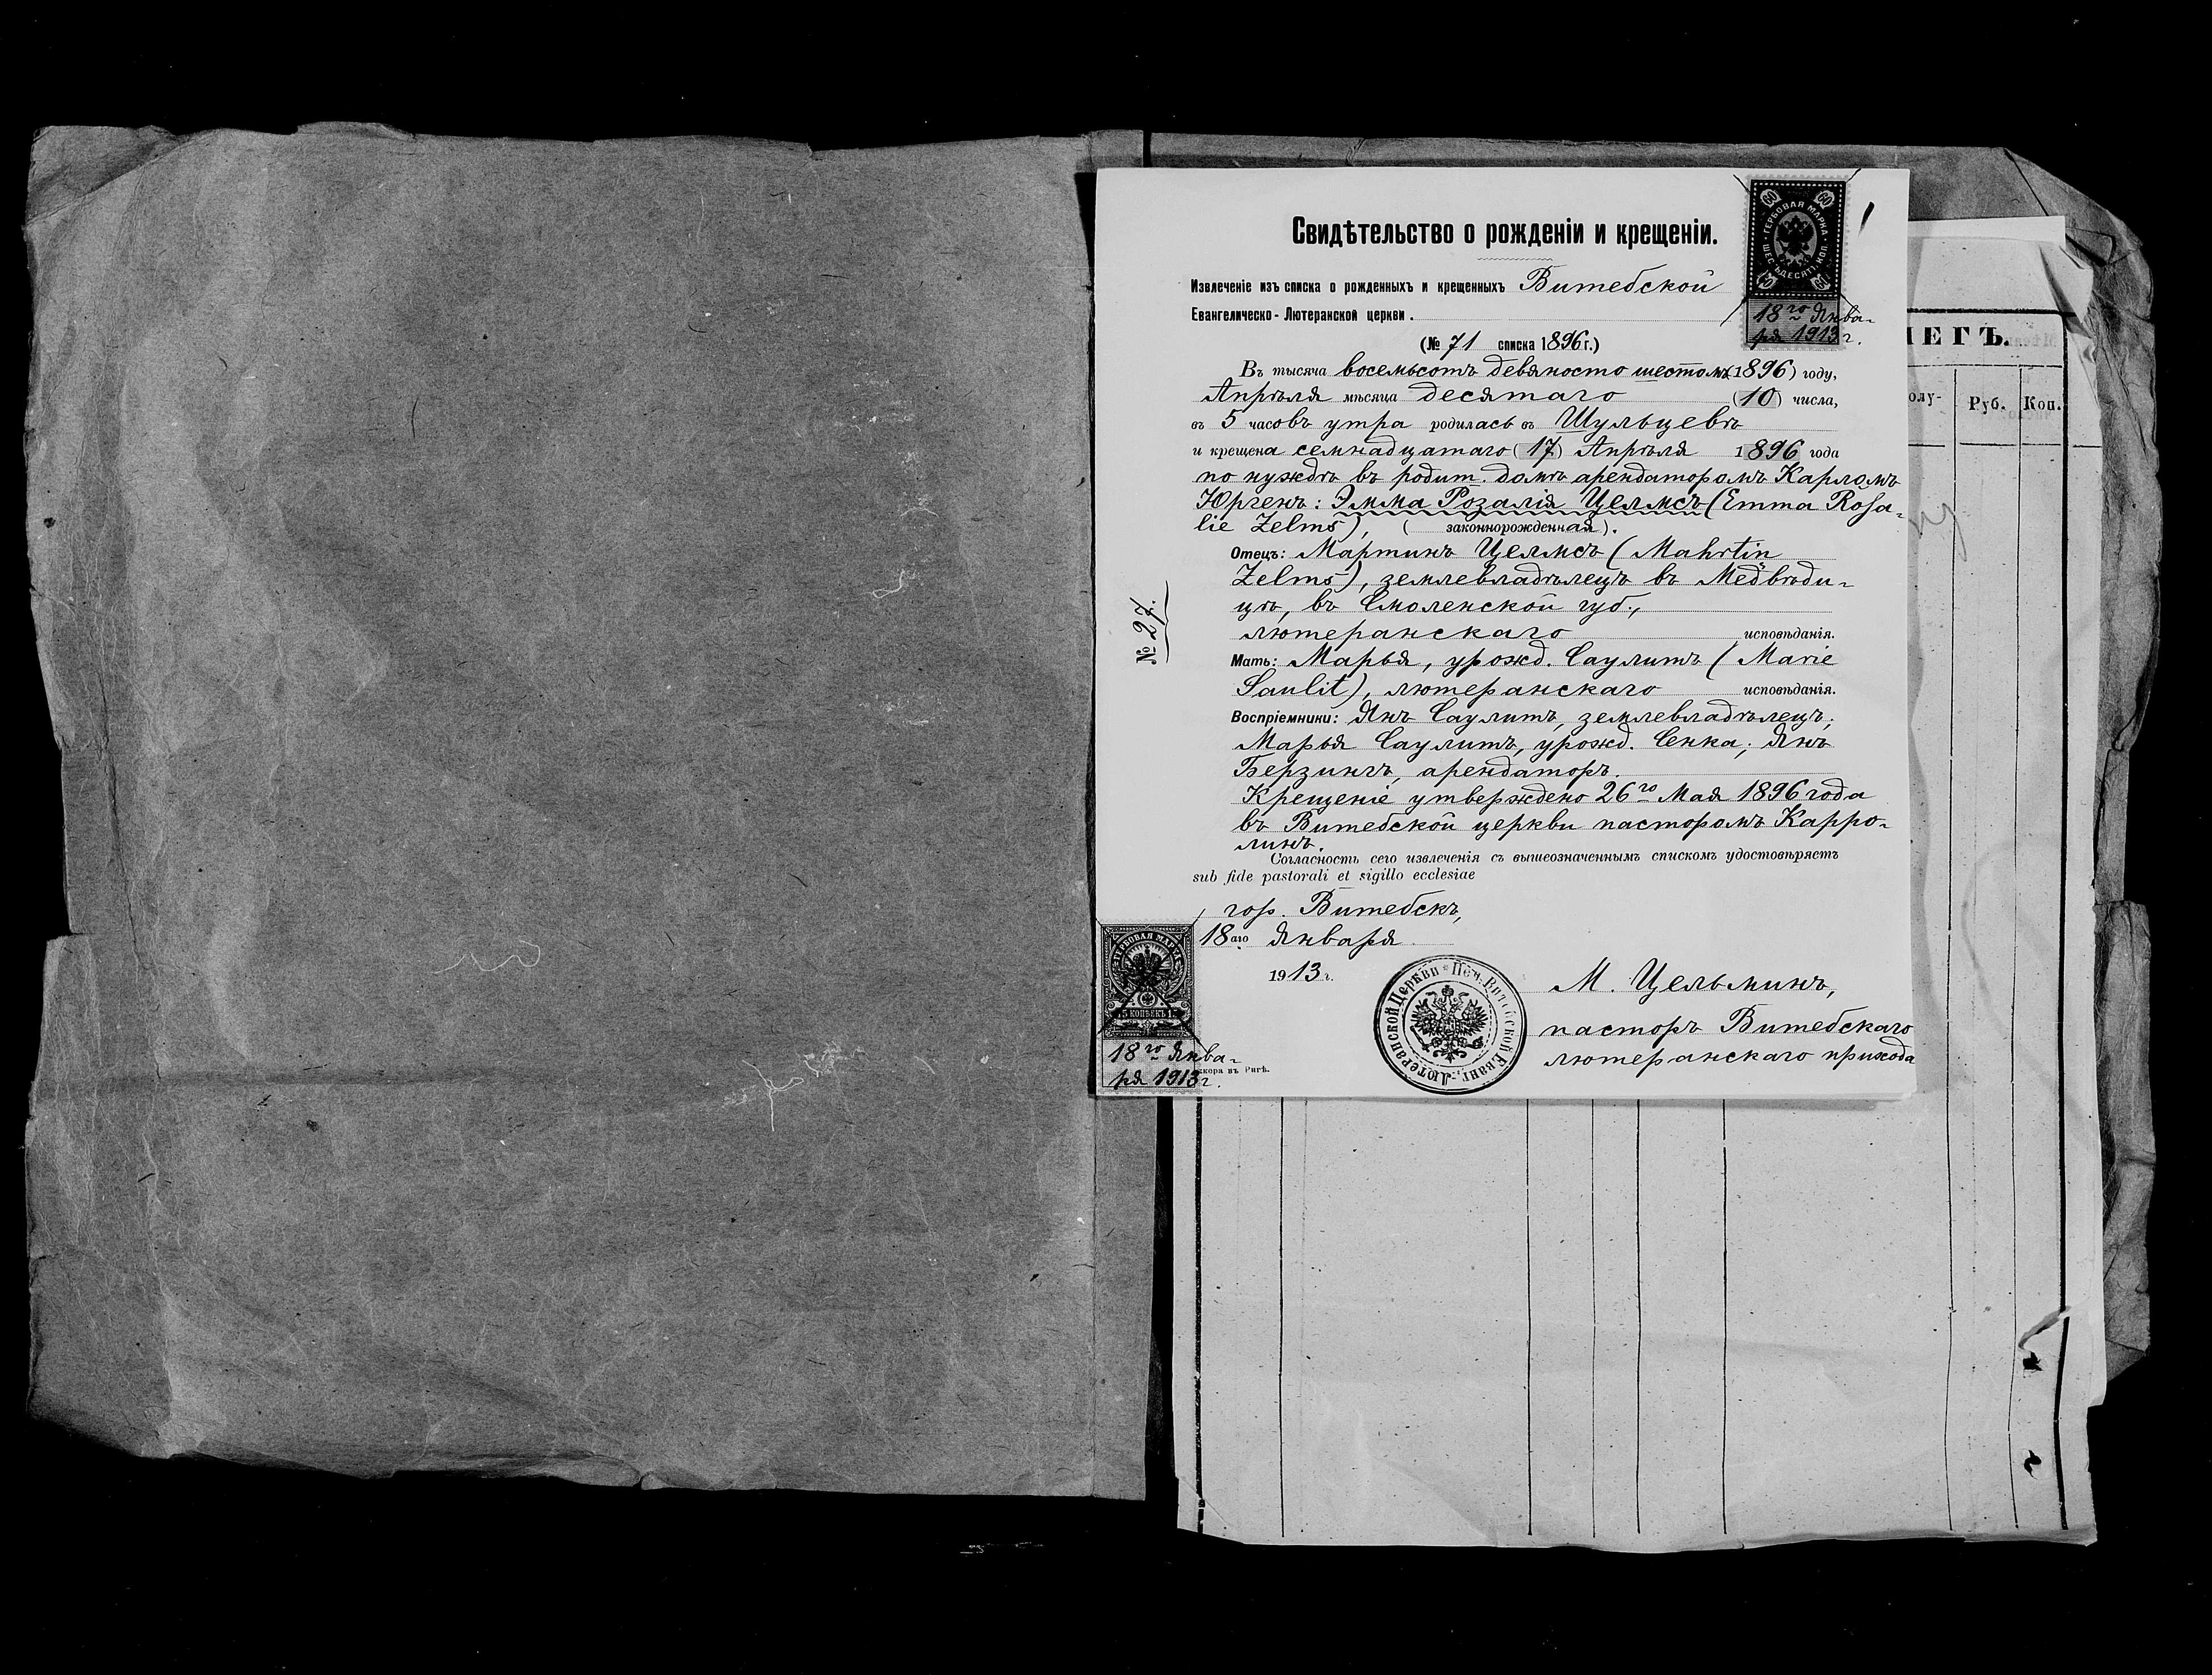 Свидѣтельство о рожденіи и крещеніи.
Извлеченіе изъ списка о рожденныхъ и крещенныхъ Витебской
Евангелическо-Лютеранской церкви.
(№ 71 списка 1896 г.)
Въ тысяча восемьсотъ девяносто шестомъ (1896) году,
Апрѣля мѣсяца десятаго (10) числа,
въ 5 часовъ утра родилась въ Шульцевѣ
и крещена семнадцатаго (17) Апрѣля 1896 года
по нуждѣ въ родит. домѣ арендаторомъ Карломъ
Юргенъ: Эмма Розалія Целмсъ (Emma Rosa-
lie Zelms), (законнорожденная).
Отецъ: Мартинъ Целмсъ (Mahrtin
Zelms), землевладѣлецъ въ Медвѣди-
цѣ, въ Смоленской губ.,
лютеранскаго исповѣданія.
Мать: Марья, урожд. Саулитъ (Marie
Saulit), лютеранскаго исповѣданія.
Воспріемники: Янъ Саулитъ, землевладѣлецъ;
Марья Саулитъ, урожд. Сенка; Янъ
Берзингъ, арендаторъ.
Крещеніе утверждено 26го Мая 1896 года
въ Витебской церкви пасторомъ Карро-
линъ.
Согласность сего извлеченія съ вышеозначеннымъ спискомъ удостовѣряетъ
sub fide pastorali et sigillo ecclesiae
гор. Витебскъ,
18аго Января
1913 г.
М. Цельминъ,
пасторъ Витебскаго
лютеранскаго прихода
№ 27.
ГЕРБОВАЯ МАРКА
ШЕСТЬДЕСЯТЪ КОП.
60 60
60 60
18го Янва-
ря 1913 г.
ГЕРБОВАЯ МАРКА
15 КОПѢЕКЪ 15
18го Янва-
ря 1913 г.
въ Ригѣ.
Печ. Витебской Еванг. Лютеранской Церкви
ЕГЪ.
олу-
Руб.
Коп.